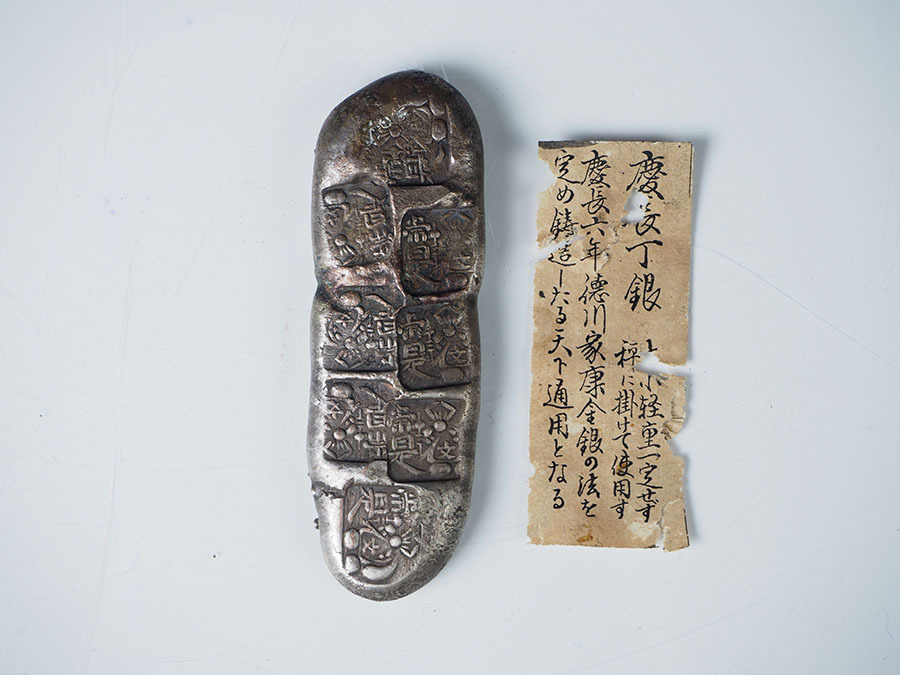 慶長丁銀
小軽重一定せず
秤に掛けて使用す
慶長六年徳川家康金銀の法を
定め鋳造したる天下通用となる
常是
常是
常是
常是